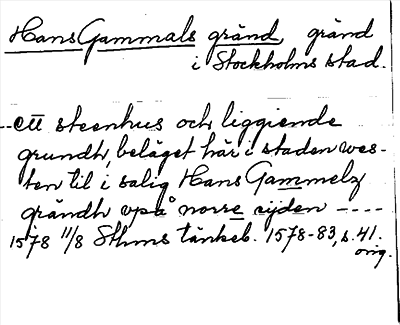 Hans Gammals gränd, gränd
i Stockholms stad.
--ett steenhus och liggiende
grundh, beläget här i staden wes-
ten til i salig Hans Gammelz
grändh vpå norre sijden ----
1578 11/8 Sthms tänkeb. 1578-83, s. 41.
orig.